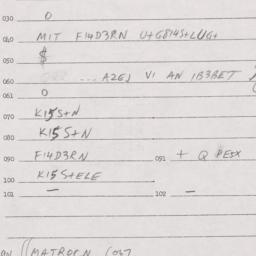 030 0
040 MIT F14D3RN U+G814S+LUG+
050 $
060 ... AZEJ VI AN 1B3BET
061 0
070 K15S+N
080 K15S+N
090 F14D3RN 091 + Q PESX
100 K15S+ELE
101 — 102 —